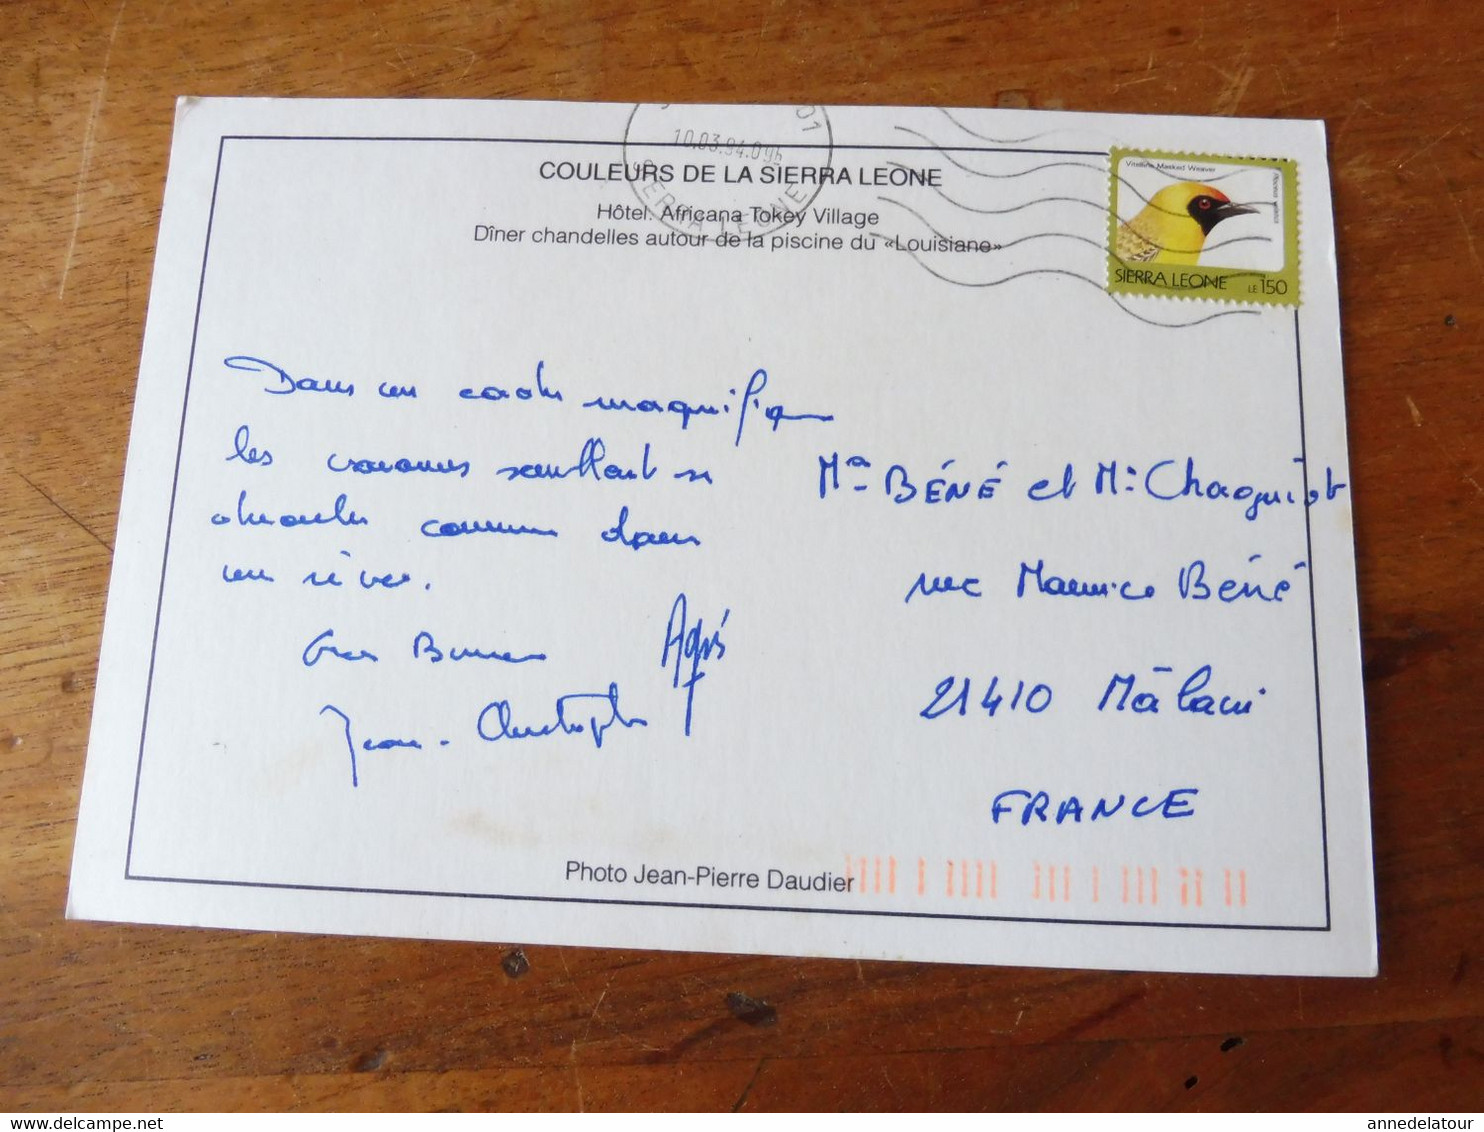 01
10.03.94.09h
SIERRA LEONE
COULEURS DE LA SIERRA LEONE
Hôtel. Africana Tokey Village
Dîner chandelles autour de la piscine du «Louisiane»
Vitelline Masked Weaver
SIERRA LEONE LE 150
Dans un cadre magnifique
les vacances semblent se
dérouler comme dans
un rêve.
Gros Bisous Agnès
Jean-Christophe
Me BÉNÉ et Mr Chaoguiot
rue Maurice Béné
21410 Mâlain
FRANCE
Photo Jean-Pierre Daudier
annedelatour